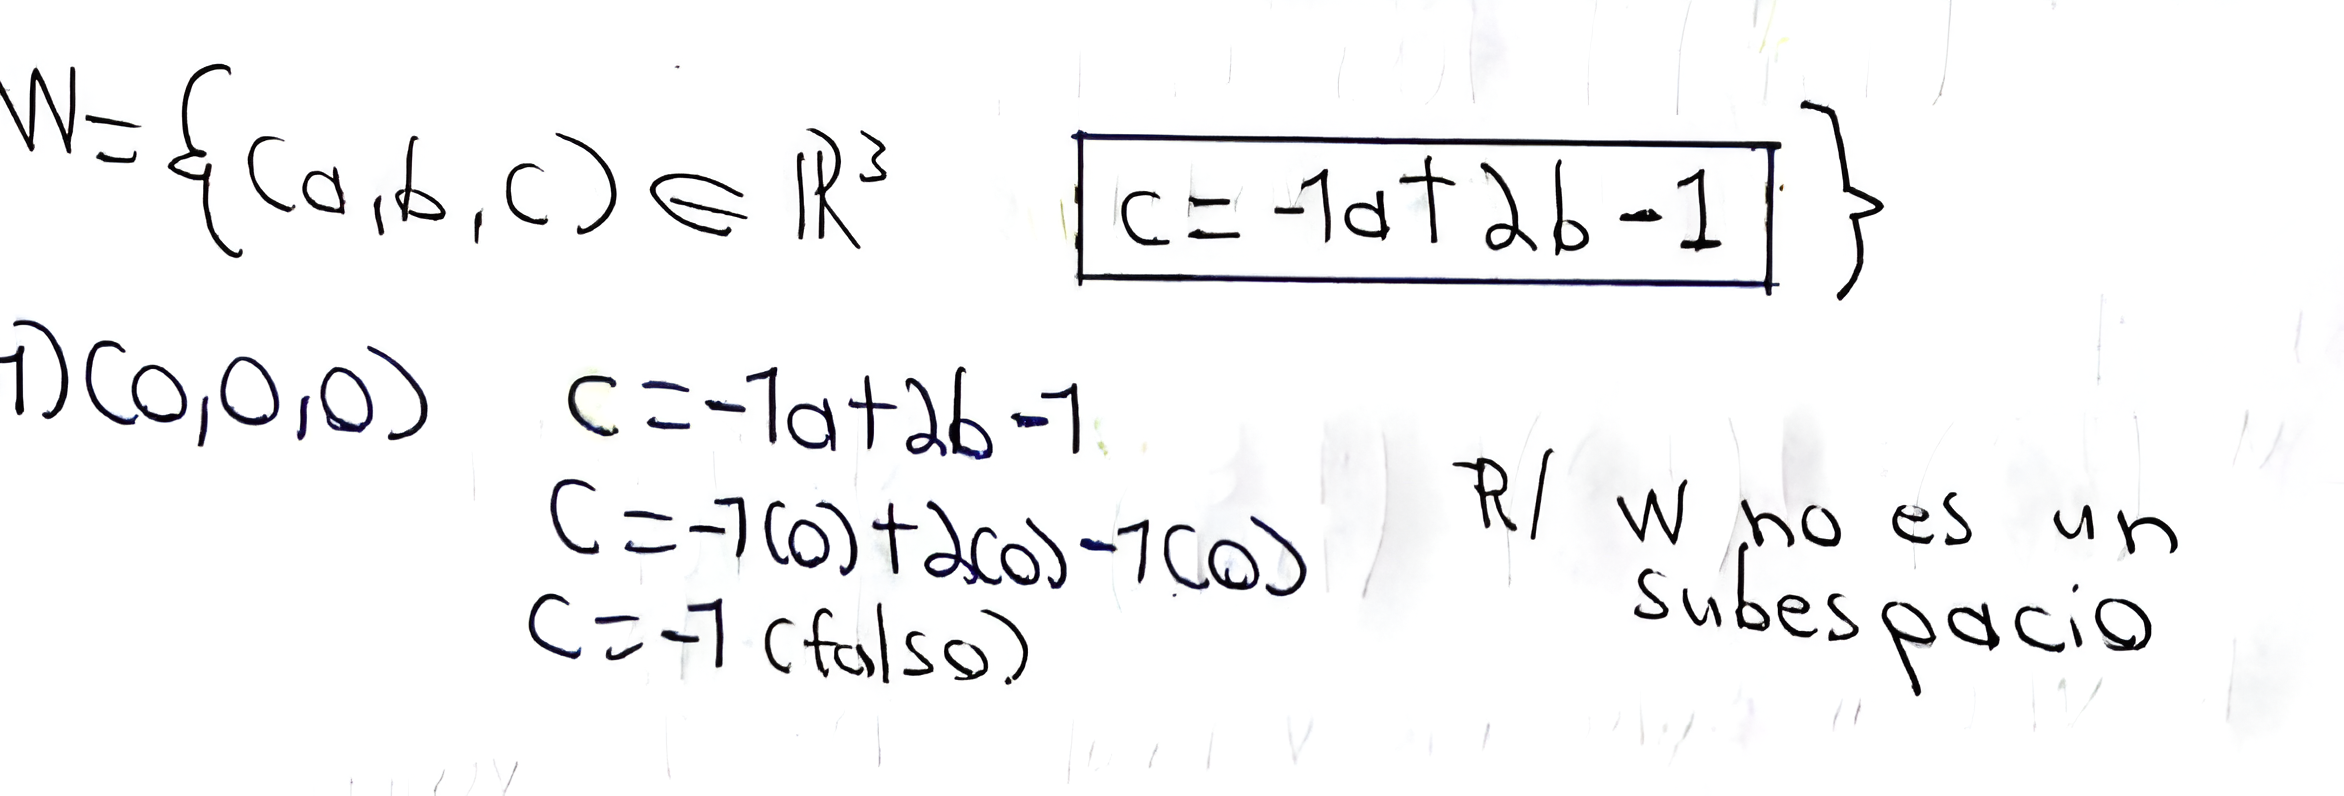 W={(a,b,c)∈ℝ³ c=-1a+2b-1}
1)(0,0,0) c=-1a+2b-1
C=-1(0)+2(0)-1(0)
C=-1 (falso)
R/ W no es un
subespacio